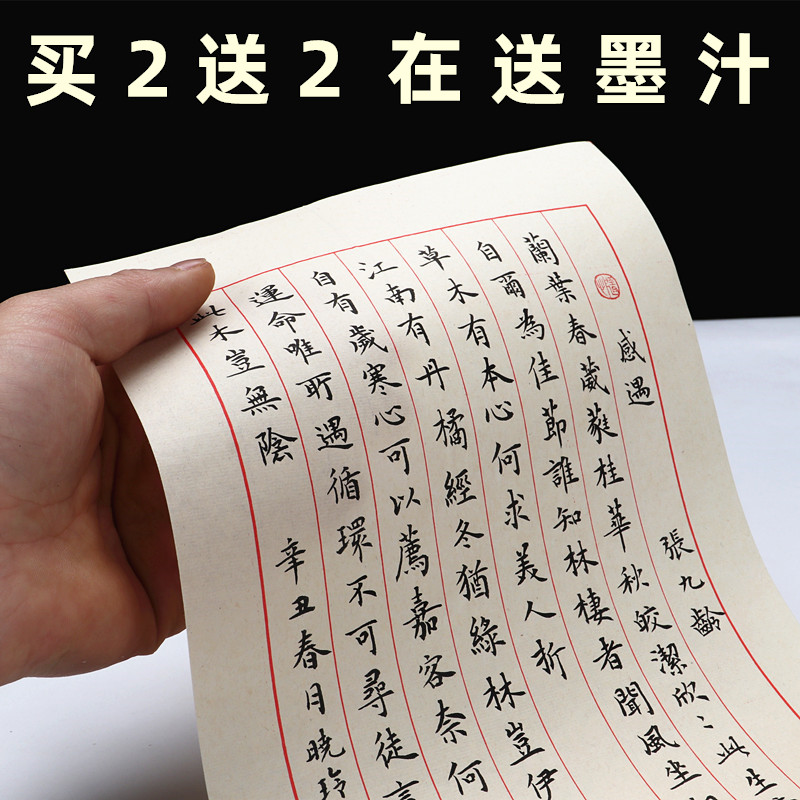 买2送2 在送墨汁
感遇 張九齡
蘭葉春葳蕤桂華秋皎潔欣〻此生
自爾為佳節誰知林棲者聞風坐
草木有本心何求美人折
江南有丹橘經冬猶綠林豈伊
自有歲寒心可以薦嘉客奈何
運命唯所遇循環不可尋徒言
此木豈無陰 辛丑春月曉玲